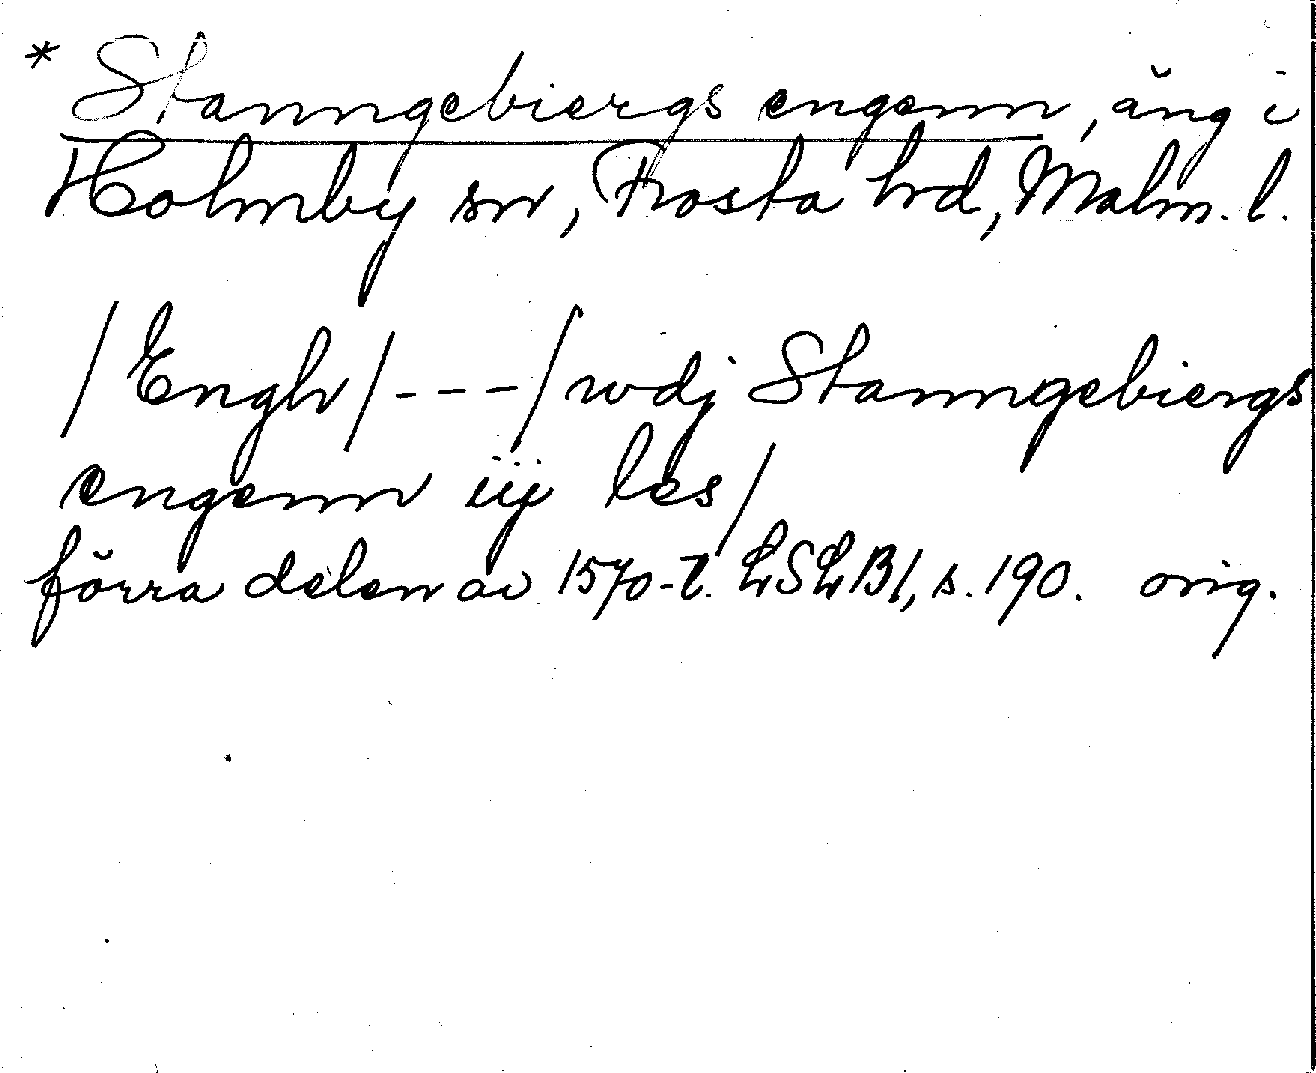 * Stanngebiergs engenn, äng i
Holmby sn, Frosta hd, Malm. l.
/Engh/---/ wdj Stanngebiergs
engenn iij les/
förra delen av 1570-t. LSLB1, s. 190. orig.